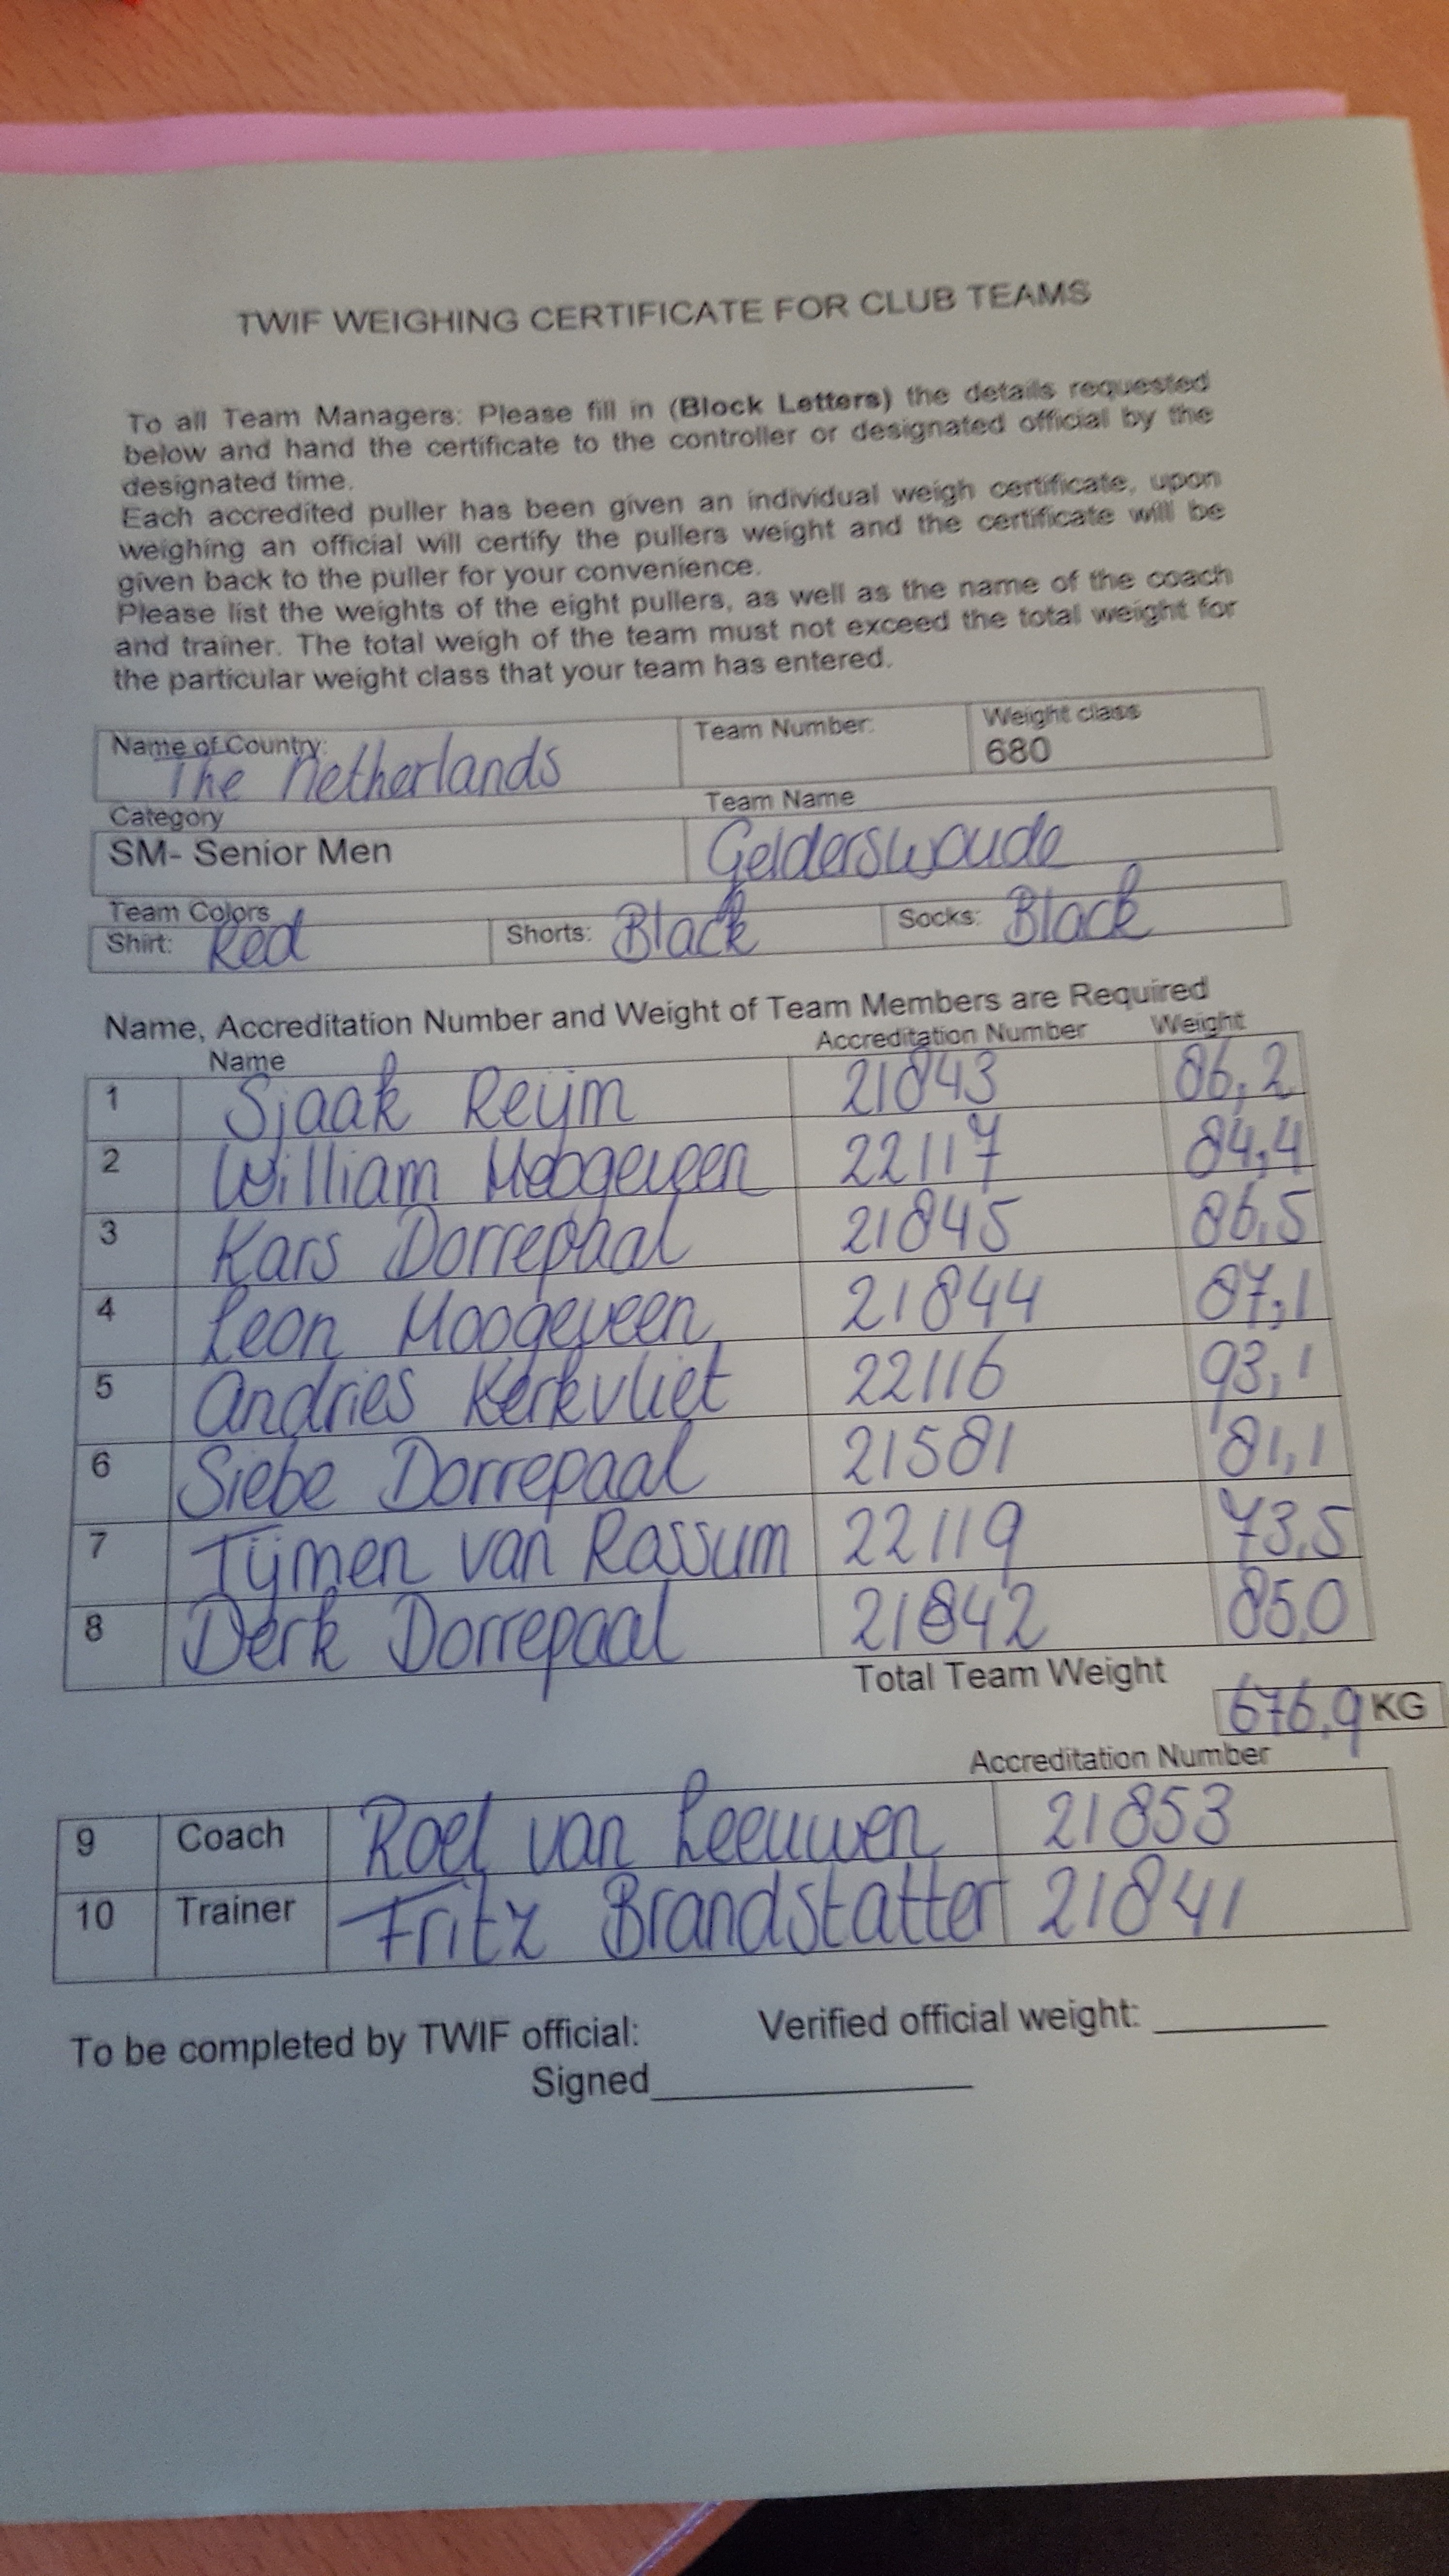 TWIF WEIGHING CERTIFICATE FOR CLUB TEAMS
To all Team Managers: Please fill in (Block Letters) the details requested
below and hand the certificate to the controller or designated official by the
designated time.
Each accredited puller has been given an individual weigh certificate, upon
weighing an official will certify the pullers weight and the certificate will be
given back to the puller for your convenience.
Please list the weights of the eight pullers, as well as the name of the coach
and trainer. The total weigh of the team must not exceed the total weight for
the particular weight class that your team has entered.
Name of Country: The Netherlands Team Number: Weight class 680
Category Team Name
SM- Senior Men Gelderswoude
Team Colors
Shirt: Red Shorts: Black Socks: Black
Name, Accreditation Number and Weight of Team Members are Required
Name Accreditation Number Weight
1 Sjaak Reijm 21843 86,2
2 William Hoogeveen 22117 84,4
3 Kars Dorrepaal 21845 86,5
4 Leon Hoogeveen 21844 87,1
5 Andries Kerkvliet 22116 93,1
6 Siebe Dorrepaal 21581 81,1
7 Tijmen van Rossum 22119 73,5
8 Derk Dorrepaal 21842 85,0
Total Team Weight 676,9 KG
Accreditation Number
9 Coach Roel van Leeuwen 21853
10 Trainer Fritz Brandstatter 21841
To be completed by TWIF official: Verified official weight:
Signed